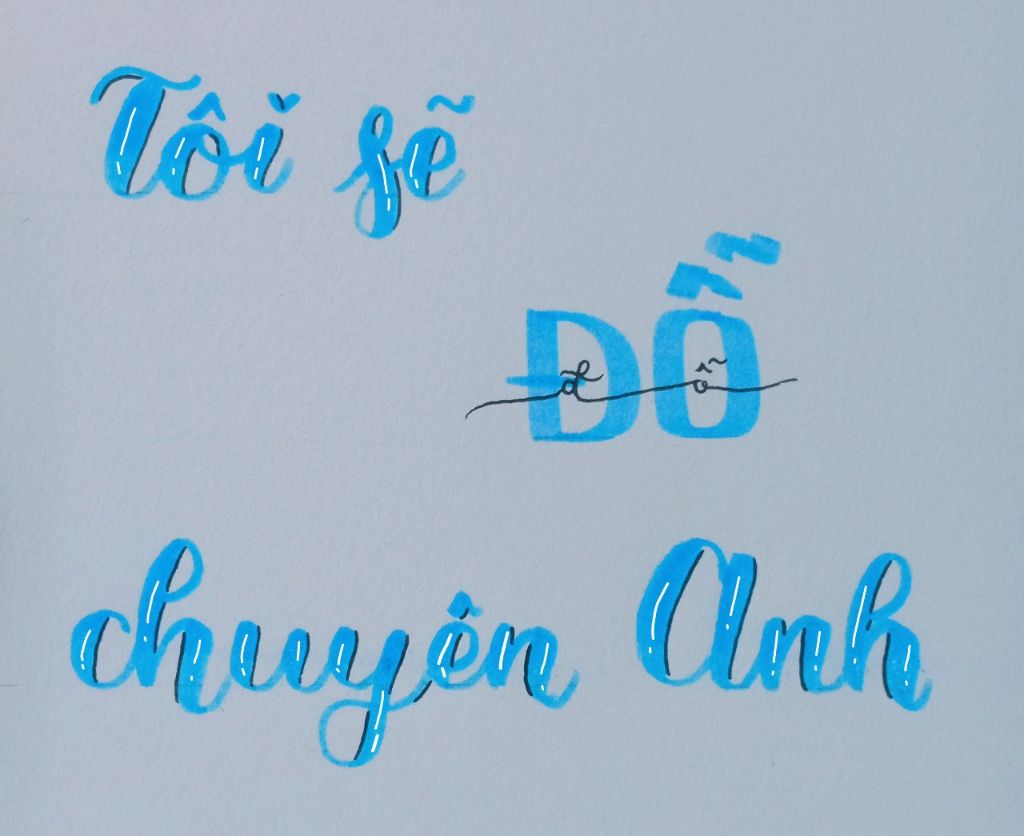 Tôi sẽ
ĐỖ
đỗ
chuyên Anh